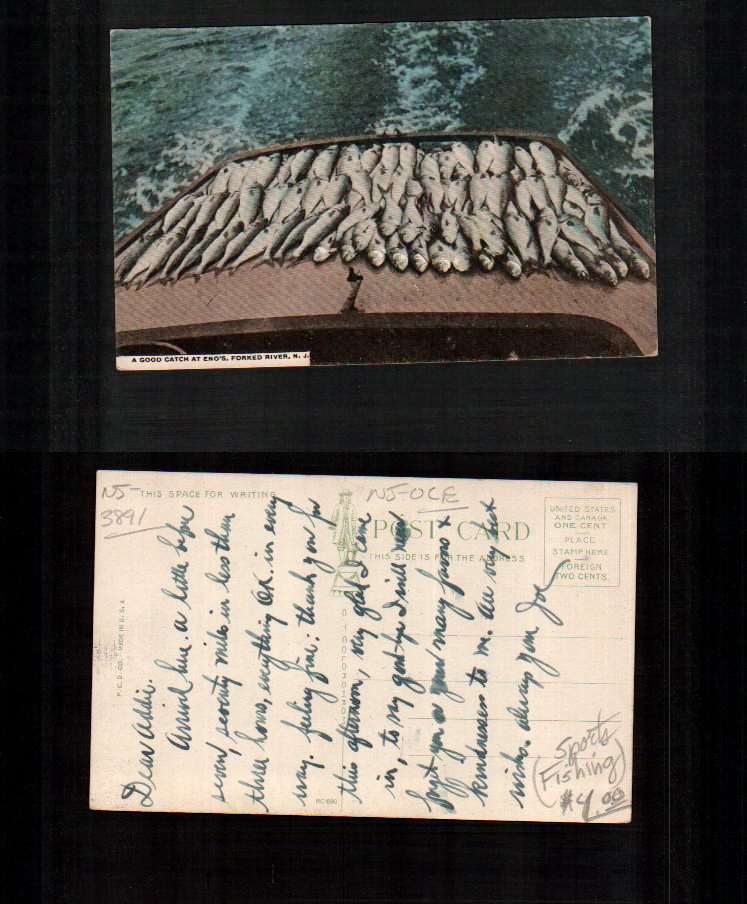 A GOOD CATCH AT ENO'S, FORKED RIVER, N. J.
NJ-
3891
THIS SPACE FOR WRITING
NJ-OCE
POST CARD
THIS SIDE IS FOR THE ADDRESS
UNITED STATES
AND CANADA
ONE CENT
PLACE
STAMP HERE
FOREIGN
TWO CENTS.
P. C. D. CO. MADE IN U. S. A.
Dear Addie.
Arrived here a little before
seven, seventy miles in less than
three hours, everything O.K. in every
way. feeling fine: thank you for
this afternoon, very glad I came
in, to my good-bye I will never
forget you or your many favors &
kindnesses to m. all my best
wishes. always your Joe
Sports
(Fishing)
$4.00